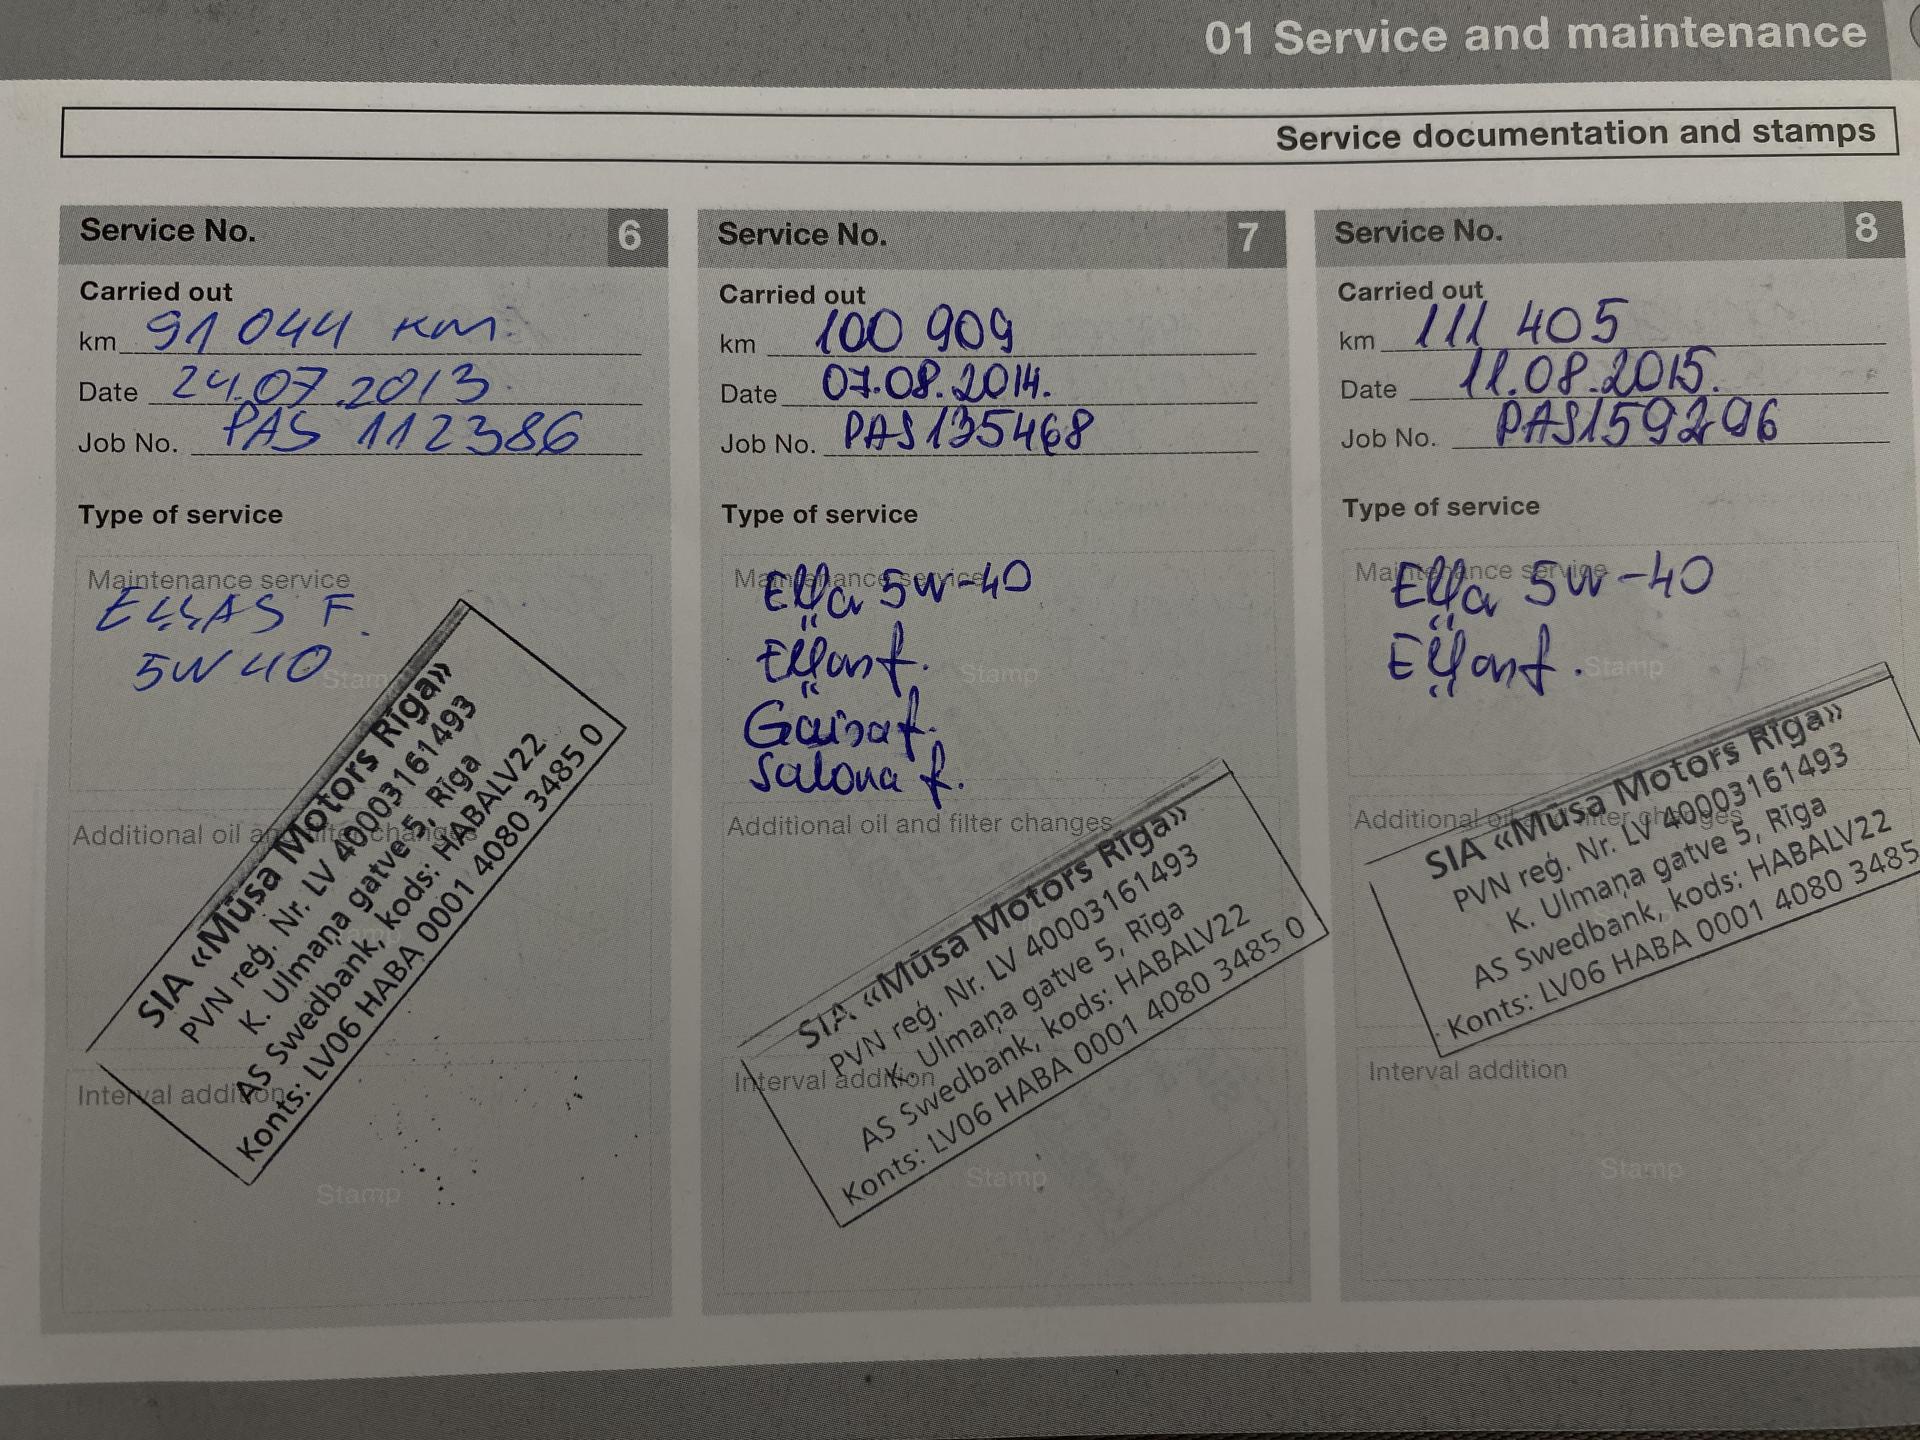 01 Service and maintenance
Service documentation and stamps
Service No. 6
Carried out
km 91 044 KM.
Date 24.07.2013.
Job No. PAS 112386
Type of service
Maintenance service
EĻĻAS F.
5W40
Stamp
Additional oil and filter changes
Stamp
Interval addition
Stamp
SIA «Mūsa Motors Rīga»
PVN reģ. Nr. LV 40003161493
K. Ulmaņa gatve 5, Rīga
AS Swedbank, kods: HABALV22
Konts: LV06 HABA 0001 4080 3485 0
Service No. 7
Carried out
km 100 909
Date 07.08.2014.
Job No. PAS135468
Type of service
Maintenance service
Eļļa 5W-40
Eļļas f.
Gaisa f.
Salona f.
Stamp
Additional oil and filter changes
SIA «Mūsa Motors Rīga»
PVN reģ. Nr. LV 40003161493
K. Ulmaņa gatve 5, Rīga
AS Swedbank, kods: HABALV22
Konts: LV06 HABA 0001 4080 3485 0
Interval addition
Stamp
Service No. 8
Carried out
km 111 405
Date 11.08.2015.
Job No. PAS159296
Type of service
Maintenance service
Eļļa 5W-40
Eļļas f.
Stamp
Additional oil and filter changes
SIA «Mūsa Motors Rīga»
PVN reģ. Nr. LV 40003161493
K. Ulmaņa gatve 5, Rīga
AS Swedbank, kods: HABALV22
Konts: LV06 HABA 0001 4080 3485
Interval addition
Stamp